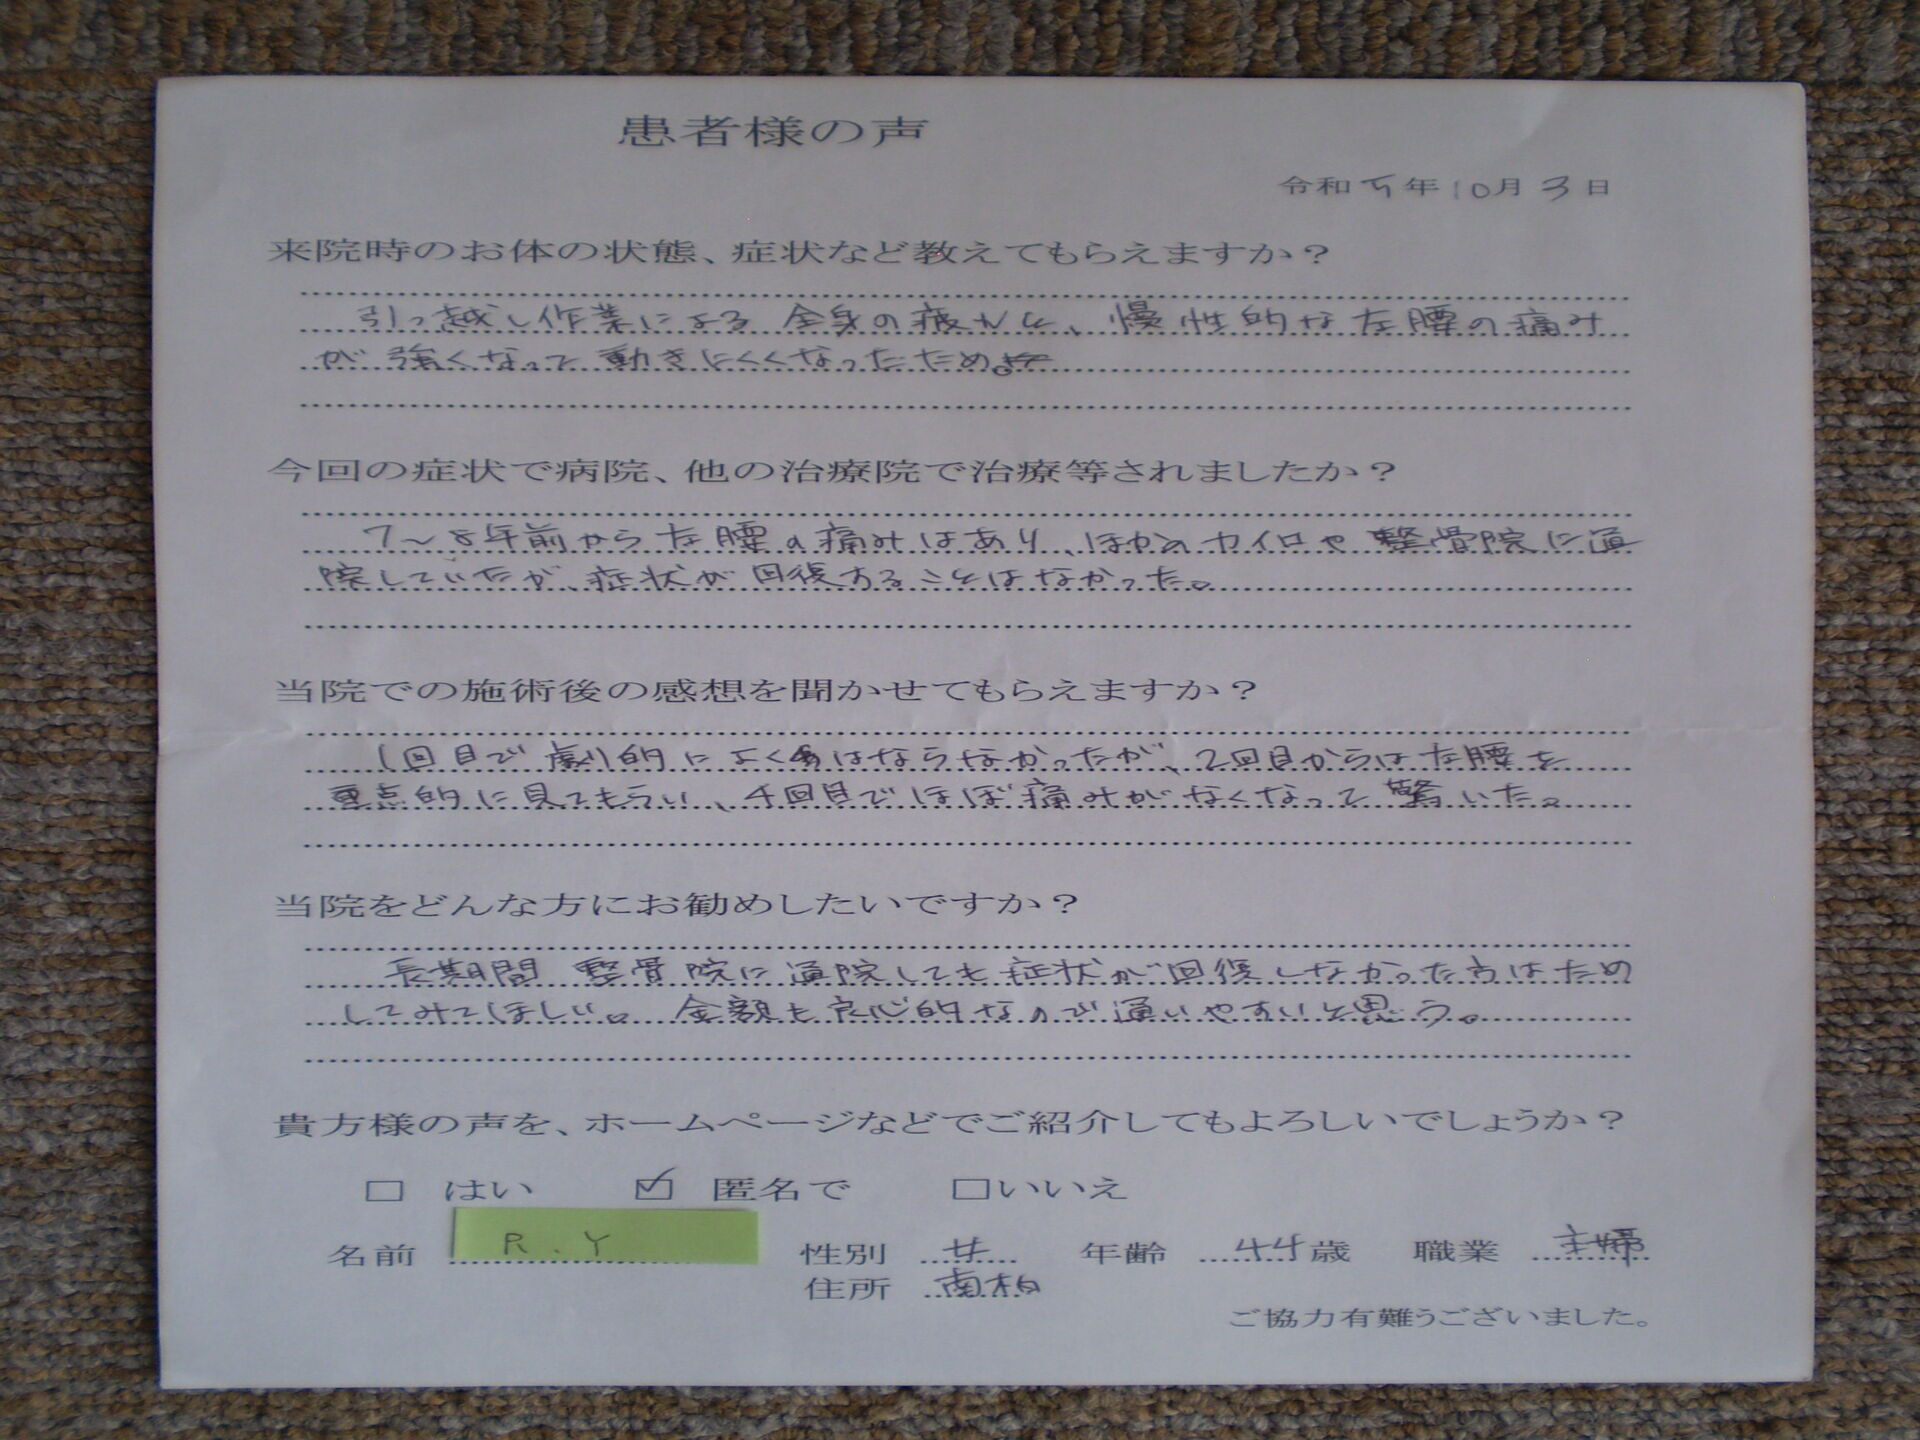 患者様の声
令和5年10月3日
来院時のお体の状態、症状など教えてもらえますか？
引っ越し作業による全身の疲れと、慢性的な左腰の痛み
が強くなって動きにくくなったため。
今回の症状で病院、他の治療院で治療等されましたか？
7～8年前から左腰の痛みはあり、ほかのカイロや整骨院に通
院していたが、症状が回復することはなかった。
当院での施術後の感想を聞かせてもらえますか？
1回目で劇的によくはならなかったが、2回目からは左腰を
重点的に見てもらい、4回目でほぼ痛みがなくなって驚いた。
当院をどんな方にお勧めしたいですか？
長期間整骨院に通院しても症状が回復しなかった方はため
してみてほしい。金額も良心的なので通いやすいと思う。
貴方様の声を、ホームページなどでご紹介してもよろしいでしょうか？
□ はい ☑ 匿名で □いいえ
名前 R.Y 性別 女 年齢 44歳 職業 主婦
住所 南柏
ご協力有難うございました。